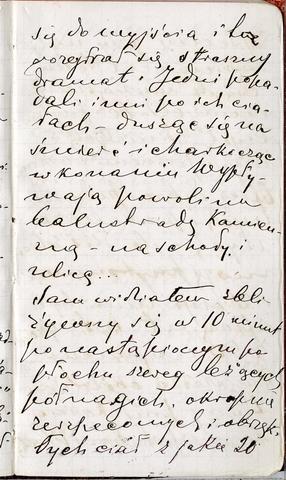 się do wyjścia i tu
rozegrał się straszny
dramat. Jedni popa-
dali inni po ich cia-
łach – dusząc się na
śmierć i charkocząc
w konaniu. Wypły-
wają powoli na
balustradę kamien-
ną – na schody, i
ulicę...
Sam widziałem zbli-
żywszy się w 10 minut
po nastąpionym po
płochu szereg leżących
półnagich, okropnie
zeszpeconych i obrzęk-
łych ciał z jakie 20